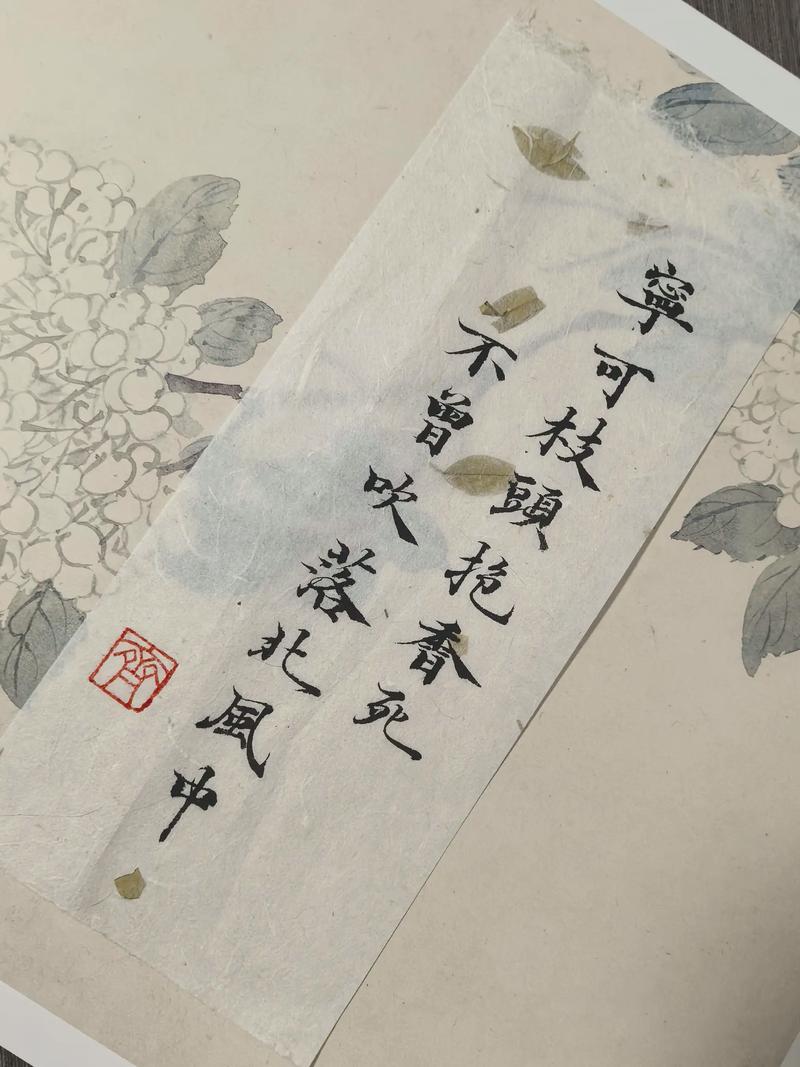 寧可枝頭抱香死
不曾吹落北風中
齊